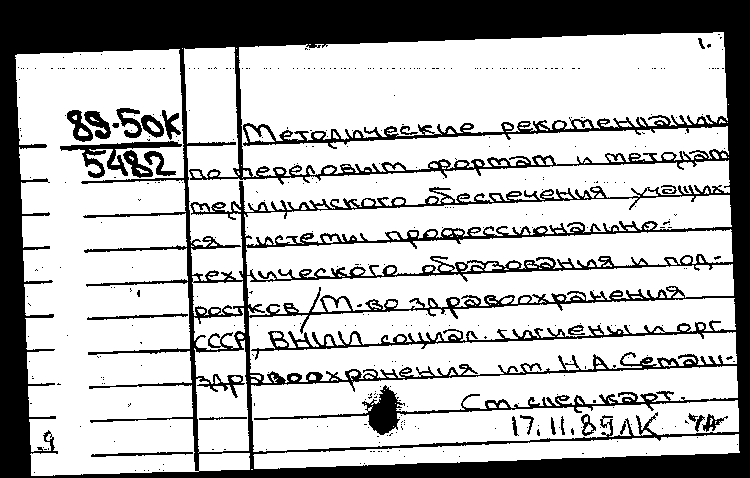 1.
89-50К
5482
Методические рекомендации
по передовым формам и методам
медицинского обеспечения учащих-
ся системы профессионально-
технического образования и под-
ростков / М-во здравоохранения
СССР, ВНИИ социал. гигиены и орг.
здравоохранения им. Н.А.Семаш-
См. след. карт.
17.11.89 ЛК
9